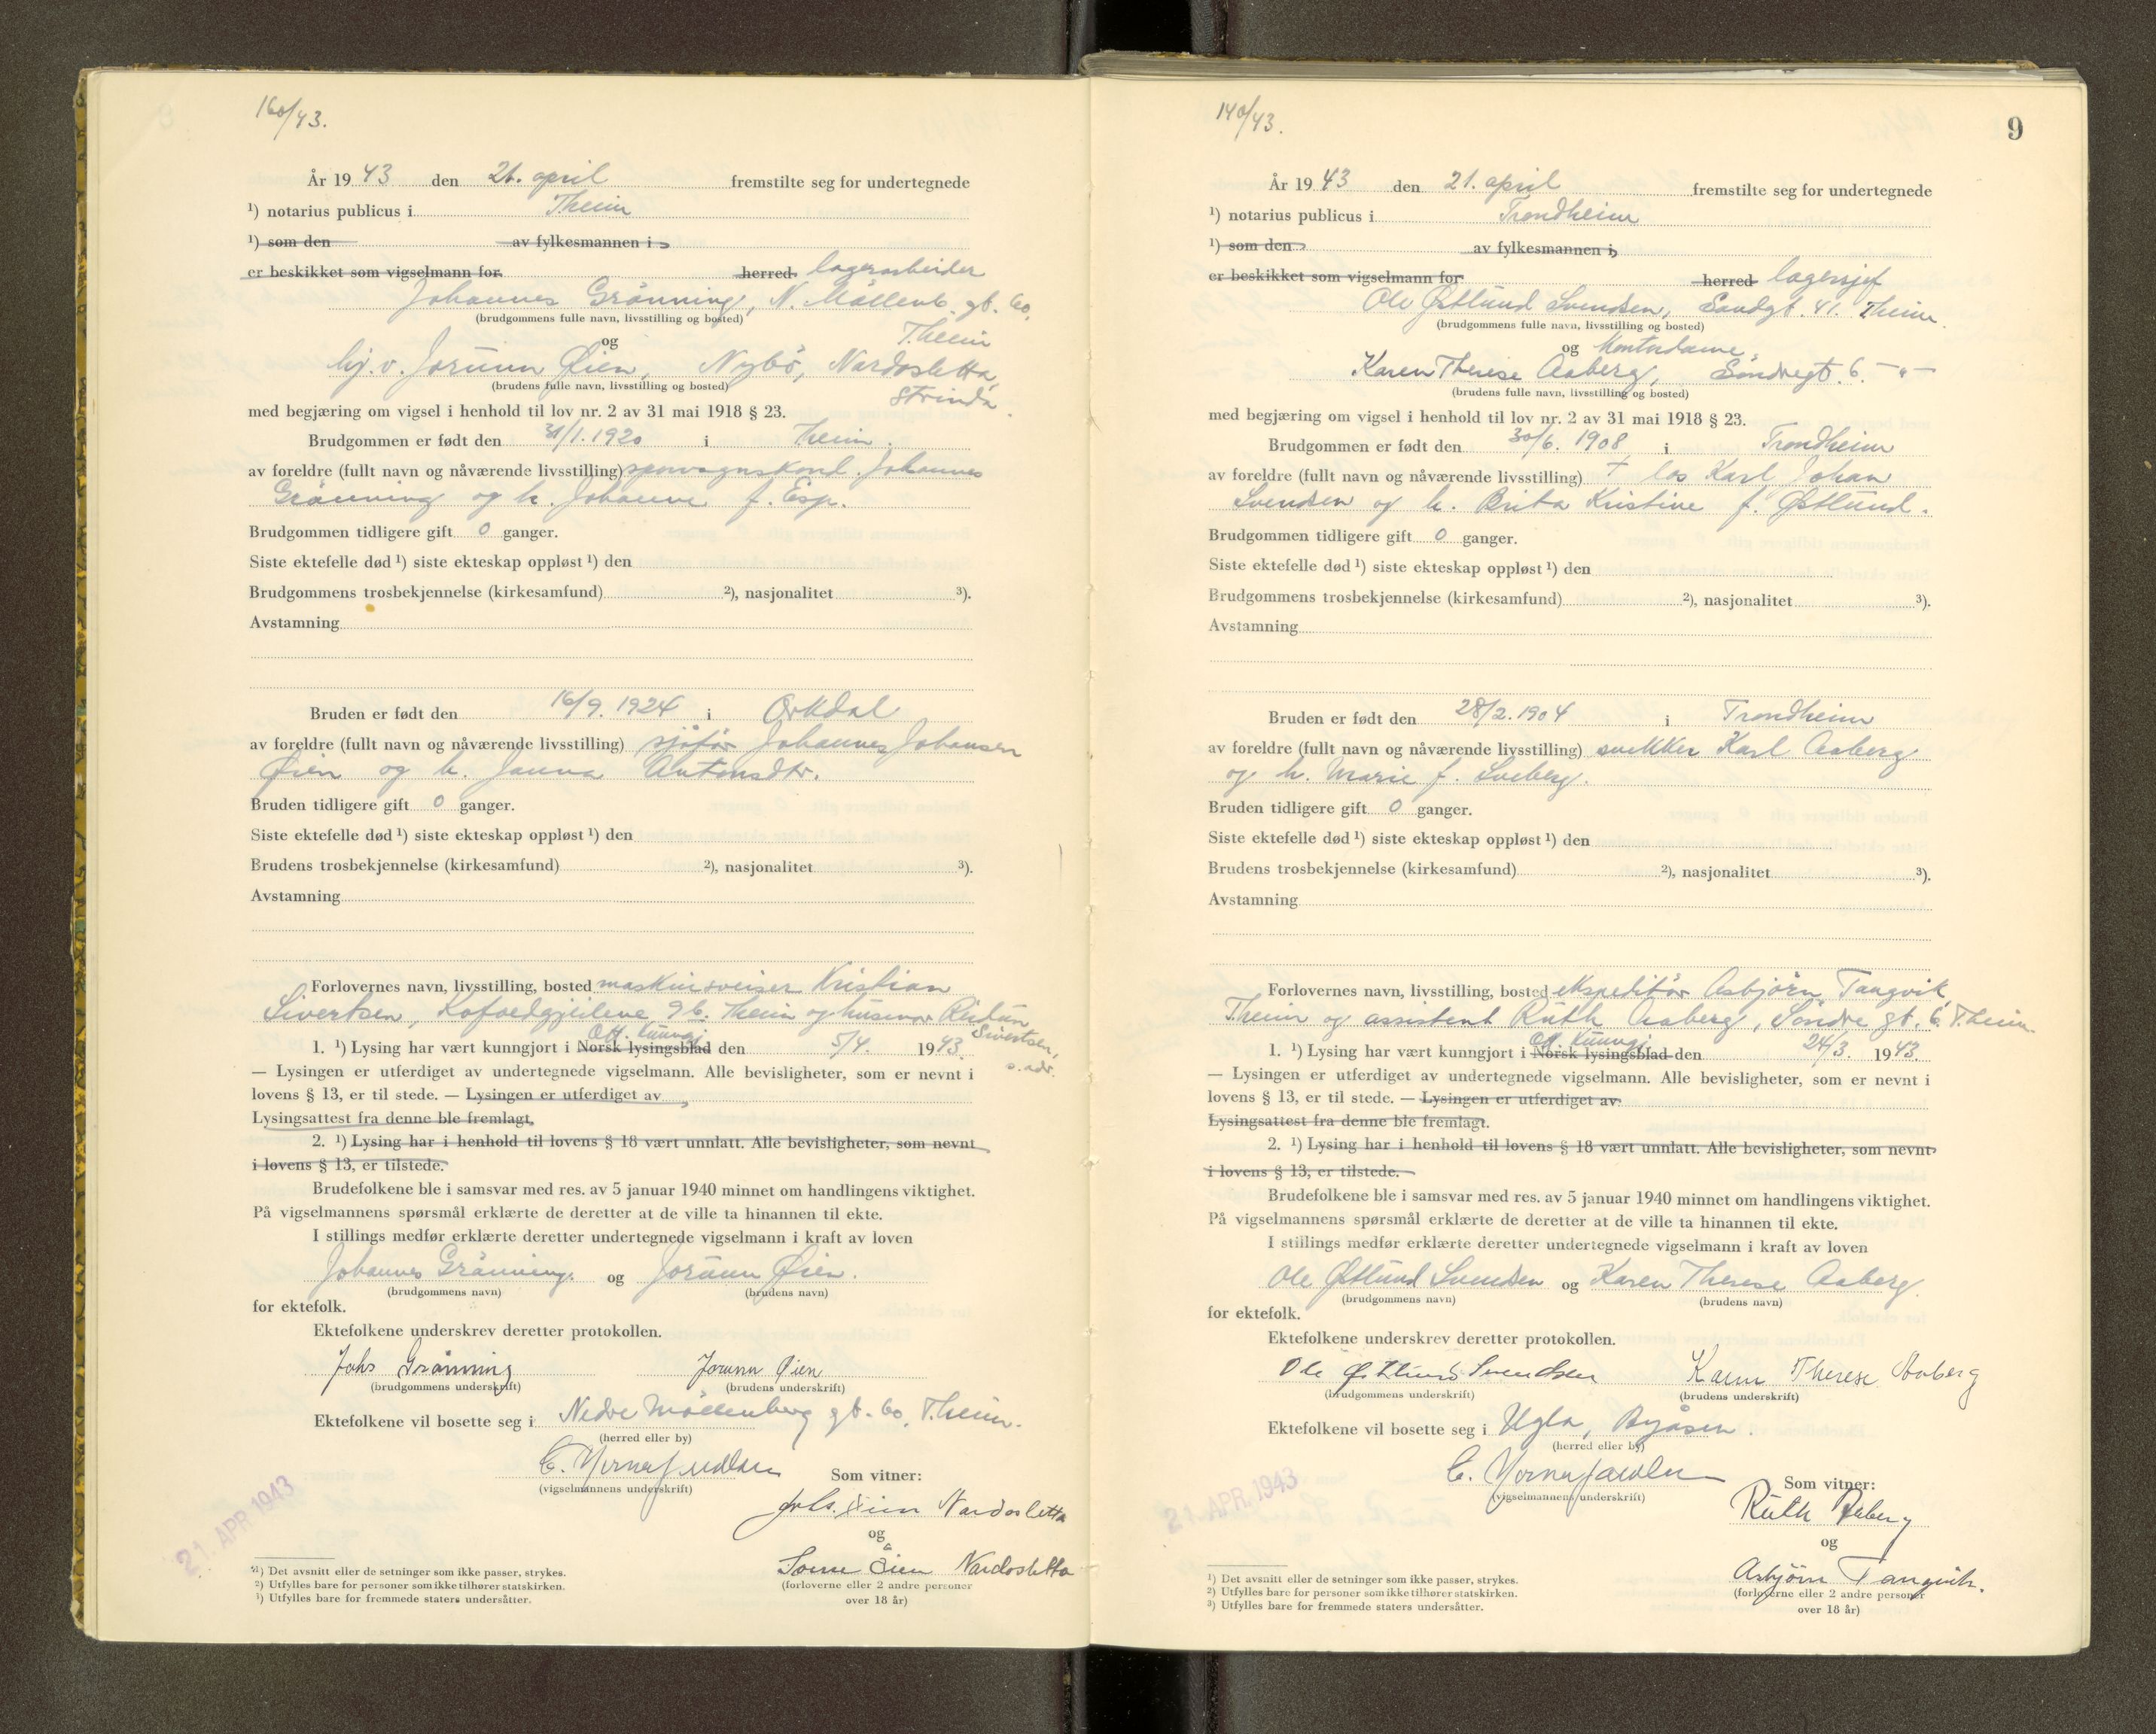 160/43.
År 19 43 den 21. april fremstilte seg for undertegnede
¹) notarius publicus i Theim
¹) som den av fylkesmannen i
er beskikket som vigselmann for herred lagerarbeider
Johannes Grönning, N. Möllenb. gt. 60,
(brudgommens fulle navn, livsstilling og bosted)
Theim
og
hj. v. Jorunn Øien, Nybö, Nardosletta,
(brudens fulle navn, livsstilling og bosted)
Strinda.
med begjæring om vigsel i henhold til lov nr. 2 av 31 mai 1918 § 23.
Brudgommen er født den /1. 1920 i Theim.
av foreldre (fullt navn og nåværende livsstilling) sporvognskond. Johannes
Grönning og h. Johanne f. Esp.
Brudgommen tidligere gift 0 ganger.
Siste ektefelle død ¹) siste ekteskap oppløst ¹) den
Brudgommens trosbekjennelse (kirkesamfund) ²), nasjonalitet ³).
Avstamning
Bruden er født den 16/9. 1924 i Orkdal
av foreldre (fullt navn og nåværende livsstilling) sjåför Johannes Johansen
Øien og h. Janna Antonsdtr.
Bruden tidligere gift 0 ganger.
Siste ektefelle død ¹) siste ekteskap oppløst ¹) den
Brudens trosbekjennelse (kirkesamfund) ²), nasjonalitet ³).
Avstamning
Forlovernes navn, livsstilling, bosted maskinsveiser Kristian
Sivertsen, Kofoedgjeilene 9b. Theim og husmor Reidun
Off. kunngj Sivertsen,
1. ¹) Lysing har vært kunngjort i Norsk lysingsblad den 5/4. 1943.
s. adr.
— Lysingen er utferdiget av undertegnede vigselmann. Alle bevisligheter, som er nevnt i
lovens § 13, er til stede. — Lysingen er utferdiget av
Lysingsattest fra denne ble fremlagt.
2. ¹) Lysing har i henhold til lovens § 18 vært unnlatt. Alle bevisligheter, som nevnt
i lovens § 13, er tilstede.
Brudefolkene ble i samsvar med res. av 5 januar 1940 minnet om handlingens viktighet.
På vigselmannens spørsmål erklærte de deretter at de ville ta hinannen til ekte.
I stillings medfør erklærte deretter undertegnede vigselmann i kraft av loven
Johannes Grönning. og Jorunn Øien.
(brudgommens navn) (brudens navn)
for ektefolk.
Ektefolkene underskrev deretter protokollen.
Johs Grönning Jorunn Øien
(brudgommens underskrift) (brudens underskrift)
Ektefolkene vil bosette seg i Nedre Möllenberg gt. 60, Theim.
(herred eller by)
C.
(vigselmannens underskrift) Som vitner:
Johs. Øien Nardosletta
og
Øien Nardosletta
(forloverne eller 2 andre personer
over 18 år)
21. APR. 1943
¹) Det avsnitt eller de setninger som ikke passer, strykes.
²) Utfylles bare for personer som ikke tilhører statskirken.
³) Utfylles bare for fremmede staters undersåtter.
140/43.
9
År 19 43 den 21. april fremstilte seg for undertegnede
¹) notarius publicus i Trondheim
¹) som den av fylkesmannen i
er beskikket som vigselmann for herred lagersjef
Ole Østlund Svendsen, Sandgt. 41. Theim.
(brudgommens fulle navn, livsstilling og bosted)
og Kontordame,
Karen Therese Aaberg, Söndregt. 6. —"—
(brudens fulle navn, livsstilling og bosted)
med begjæring om vigsel i henhold til lov nr. 2 av 31 mai 1918 § 23.
Brudgommen er født den 30/6. 1908 i Trondheim
av foreldre (fullt navn og nåværende livsstilling) † los Karl Johan
Svendsen og h. Brita Kristine f. Østlund.
Brudgommen tidligere gift 0 ganger.
Siste ektefelle død ¹) siste ekteskap oppløst ¹) den
Brudgommens trosbekjennelse (kirkesamfund) ²), nasjonalitet ³).
Avstamning
Bruden er født den 28/2. 1904 i Trondheim
av foreldre (fullt navn og nåværende livsstilling) snekker Karl Aaberg
og h. Marie f. Sveberg.
Bruden tidligere gift 0 ganger.
Siste ektefelle død ¹) siste ekteskap oppløst ¹) den
Brudens trosbekjennelse (kirkesamfund) ²), nasjonalitet ³).
Avstamning
Forlovernes navn, livsstilling, bosted ekspeditör Asbjörn Tangvik,
Theim og assistent Ruth Aaberg, Söndre gt. 6. Theim.
Off. kunngj
1. ¹) Lysing har vært kunngjort i Norsk lysingsblad den 24/3. 1943.
— Lysingen er utferdiget av undertegnede vigselmann. Alle bevisligheter, som er nevnt i
lovens § 13, er til stede. — Lysingen er utferdiget av
Lysingsattest fra denne ble fremlagt.
2. ¹) Lysing har i henhold til lovens § 18 vært unnlatt. Alle bevisligheter, som nevnt
i lovens § 13, er tilstede.
Brudefolkene ble i samsvar med res. av 5 januar 1940 minnet om handlingens viktighet.
På vigselmannens spørsmål erklærte de deretter at de ville ta hinannen til ekte.
I stillings medfør erklærte deretter undertegnede vigselmann i kraft av loven
Ole Østlund Svendsen og Karen Therese Aaberg.
(brudgommens navn) (brudens navn)
for ektefolk.
Ektefolkene underskrev deretter protokollen.
Ole Østlund Svendsen Karen Therese Aaberg
(brudgommens underskrift) (brudens underskrift)
Ektefolkene vil bosette seg i Ugla, Byåsen.
(herred eller by)
C.
(vigselmannens underskrift) Som vitner:
Ruth Aaberg
og
Asbjörn Tangvik.
(forloverne eller 2 andre personer
over 18 år)
21. APR. 1943
¹) Det avsnitt eller de setninger som ikke passer, strykes.
²) Utfylles bare for personer som ikke tilhører statskirken.
³) Utfylles bare for fremmede staters undersåtter.